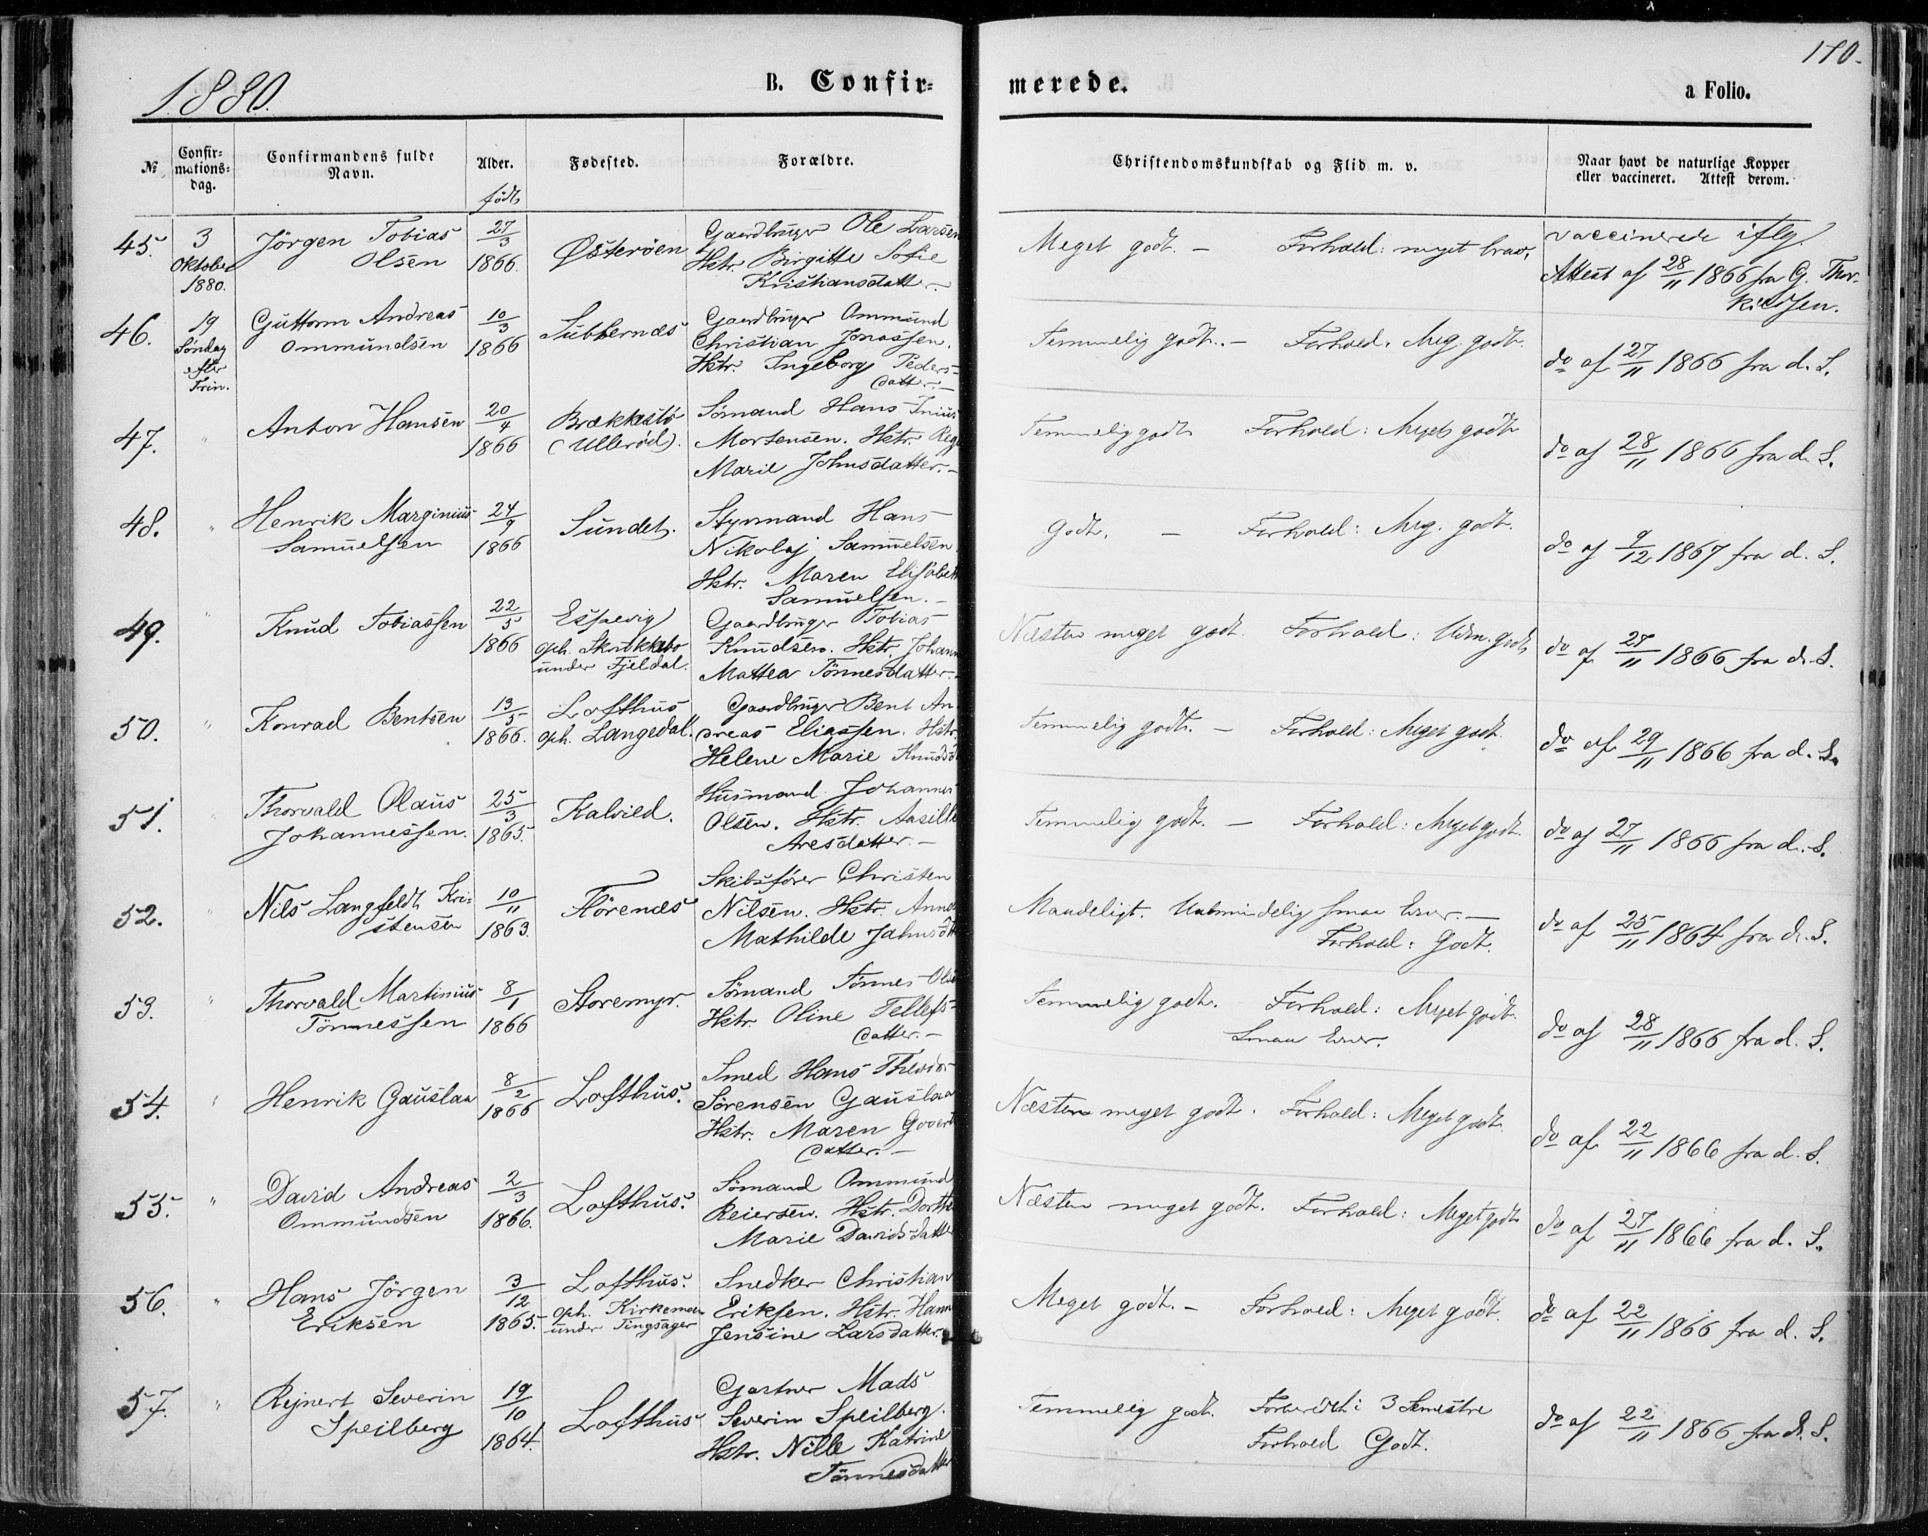 1880.
B. Confir-
merede.
a Folio.
170.
№
Confir-
mations-
dag.
Confirmandens fulde
Navn.
Alder.
født
Fødested.
Forældre.
Christendomskundskab og Flid m. v.
Naar havt de naturlige Kopper
eller vaccineret. Attest derom.
45.
3
Oktober
1880.
Jörgen Tobias
Olsen
27/3
1866.
Østeröen
Gaardbruger Ole Larsen
Hstr. Birgitte Sofie
Kristiansdatter.
Meget godt. — Forhold: meget brav.
vaccinerede iflg.
Attest af 28/11 1866 fra G. Thor-
kildsen.
46.
19
Söndag
efter
Trin.
Guttorm Andreas
Ommundsen
10/3
1866
Tubbernæs
Gaardbruger Ommund
Christian Jonassen.
Hstr. Ingeborg Peders-
datter.—
Temmelig godt. — Forhold. Meg. godt.
do af 27/11 1866 fra d. S.
47.
"
Anton Hansen
20/4
1866
Brækkestö
(Ulleröd).
Sömand Hans
Mortensen. Hstr.
Marie Johnsdatter.—
Temmelig godt Forhold: Meget godt
do af 28/11 1866 fra d. S.
48.
"
Henrik Marginius
Samuelsen
24/9
1866
Sundet.
Styrmand Hans
Nikolaj Samuelsen
Hstr. Maren Elisabeth
Samuelsen.—
Godt. — Forhold: Meg. godt.
do af 9/12 1867 fra d. S.
49.
"
Knud Tobiassen
22/5
1866
Espevig
oph.
under Fjeldal.
Gaardbruger Tobias
Knudsen. Hstr. Johanne
Mathea Tönnesdatter.—
Næsten meget godt. Forhold: Udm. godt
do af 27/11 1866 fra d. S.
50.
"
Konrad Bentsen
13/5
1866.
Lofthus
oph. Langedal.
Gaardbruger Bent An-
dreas Eliassen. Hstr.
Helene Marie Knudsd
Temmelig godt. — Forhold: Meget godt.
do af 29/11 1866 fra d. S.
51.
"
Thorvald Olaus
Johannessen.
25/3
1865.
Kalvild.
Husmand Johannes
Olsen. Hstr. Aasille
Aresdatter.—
Temmelig godt. — Forhold: Meget godt.
do af 27/11 1866 fra d. S.
52.
"
Nils Langfeldt Kri-
stensen
10/11
1863.
Flörenæs
Skibsförer Christen
Nilsen. Hstr. Anne
Mathilde Jahnsdtt
Maadeligt. Ualmindelig smaa Evner.—
Forhold: Godt.
do af 25/11 1864 fra d. S.
53.
"
Thorvald Martinius
Tönnessen
8/1
1866
Storemyr.
Sömand Tönnes Olsen
Hstr. Oline Tellefs-
datter.—
Temmelig godt. Forhold: Meget godt.
Smaa Evner.
do af 28/11 1866 fra d. S.
54.
"
Henrik Gauslaa
8/2
1866
Lofthus.
Smed Hans Theodor
Sörensen Gauslaa
Hstr. Maren Goverts
datter.—
Næsten meget godt. Forhold: Meget godt.
do af 22/11 1866 fra d. S.
55.
"
David Andreas
Ommundsen
2/3
1866.
Lofthus.
Sömand Ommund
Reiersen. Hstr. Dorthe
Marie Davidsdatter
Næsten meget godt. Forhold: Meget godt
do af 27/11 1866 fra d. S.
56.
"
Hans Jörgen
Eriksen
3/12
1865.
Lofthus.
oph. Kirkemoen
under Tingsager
Snedker Christian
Eriksen. Hstr. Hanne
Jensine Larsdatter.
Meget godt. — Forhold: Meget godt.
do af 22/11 1866 fra d. S.
57.
"
Rejnert Severin
Speilberg
19/10
1864.
Lofthus
Gartner Mads
Severin Speilberg.
Hstr. Nille Katrine
Tönnesdatter
Temmelig godt. Forberedt i 3 Semestre
Forhold Godt.
do af 22/11 1866 fra d. S.